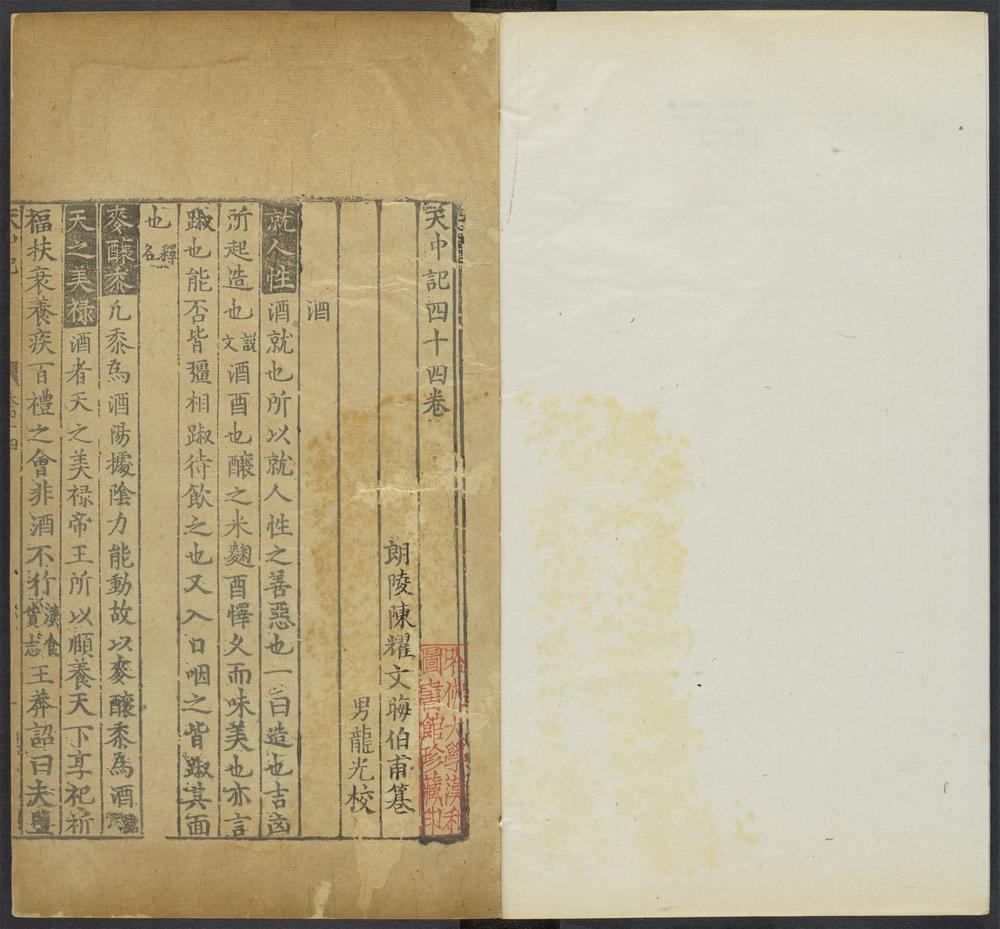 天中記四十四卷
朗陵陳耀文晦伯甫纂
男龍光校
酒
就人性酒就也所以就人性之善惡也一曰造也吉凶
所起造也說文酒酉也釀之米麴酉懌久而味美也亦言
踧也能否皆彊相踧待飲之也又入口咽之皆踧其面
也釋名
麥釀黍凡黍為酒陽據陰力能動故以麥釀黍為酒
天之美祿酒者天之美祿帝王所以頤養天下享祀祈
福扶衰養疾百禮之會非酒不行漢食貨志王莽詔曰夫鹽
哈佛大學漢和
圖書館珍藏印